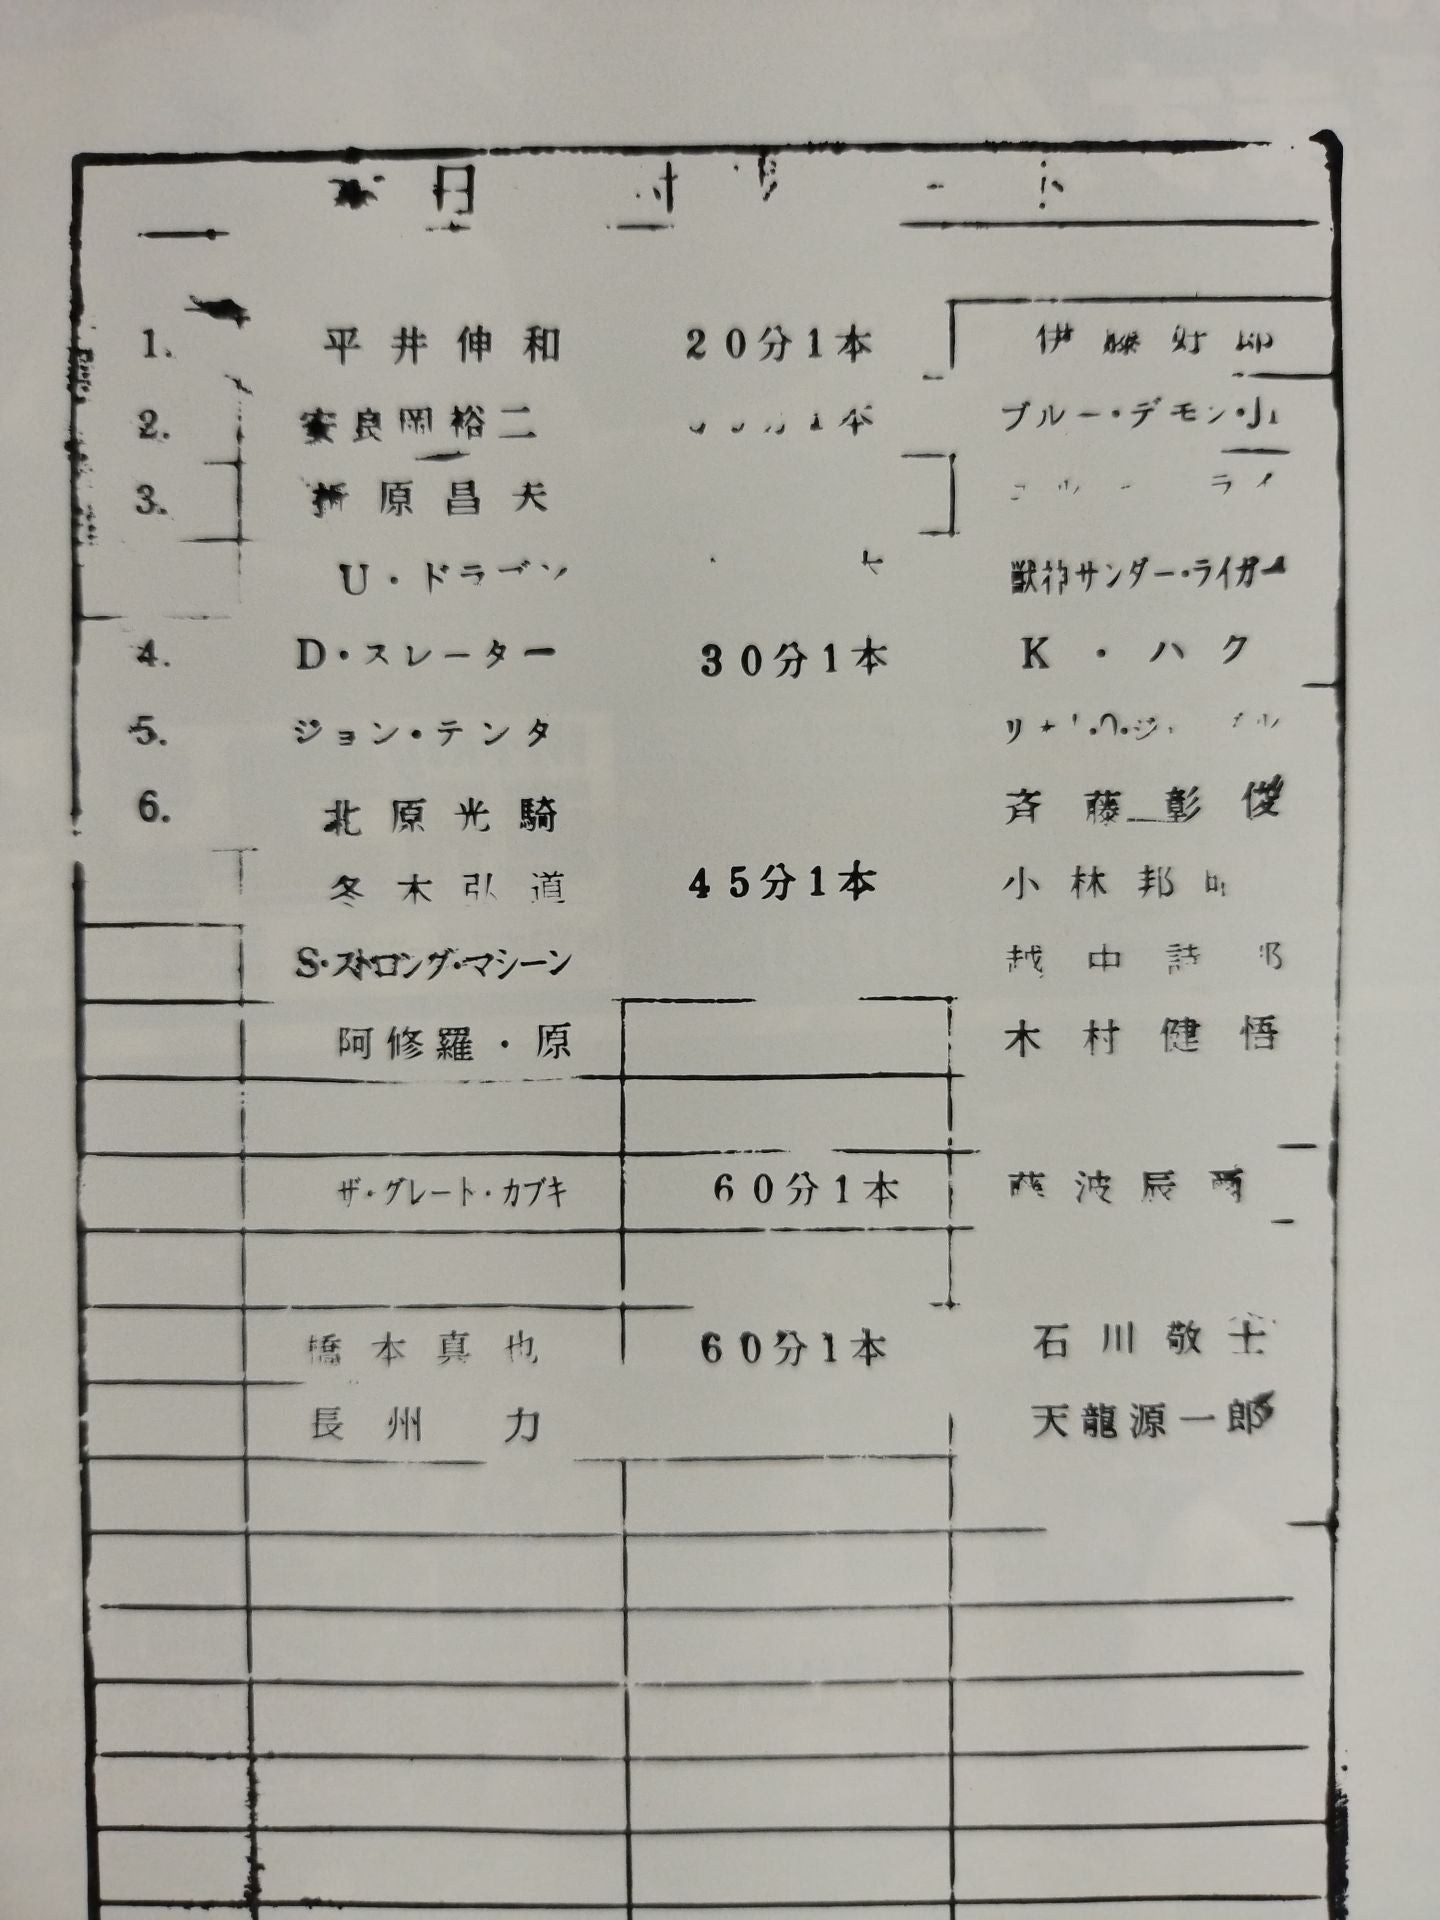 1. 平井伸和 20分1本 伊藤好郎
2. 安良岡裕二 1本 ブルー・デモン・Jr
3. 折原昌夫
U・ドラゴン 獣神サンダー・ライガー
4. D・スレーター 30分1本 K・ハク
5. ジョン・テンタ
6. 北原光騎 斉藤彰俊
冬木弘道 45分1本 小林邦昭
S・ストロング・マシーン 越中詩郎
阿修羅・原 木村健悟
ザ・グレート・カブキ 60分1本 藤波辰爾
橋本真也 60分1本 石川敬士
長州力 天龍源一郎